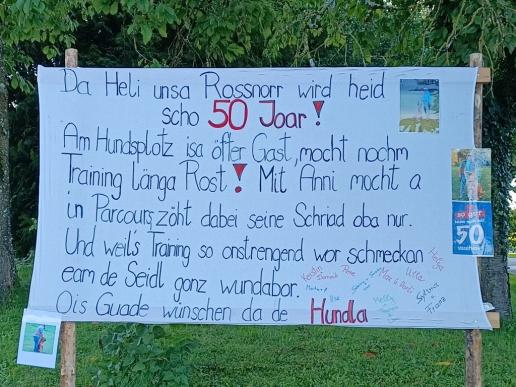 Da Heli unsa Rossnorr wird heid
scho 50 Joar!
Am Hundsplotz isa öfter Gast, mocht nochm
Training länga Rost! Mit Anni mocht a
in Parcours, zöht dabei seine Schriad oba nur.
Und weil's Training so onstrengend wor schmeckan
eam de Seidl gonz wundabor.
Ois Guade wünschen da de Hundla
50
Kerstin
Ulla
Sylvia
Franz